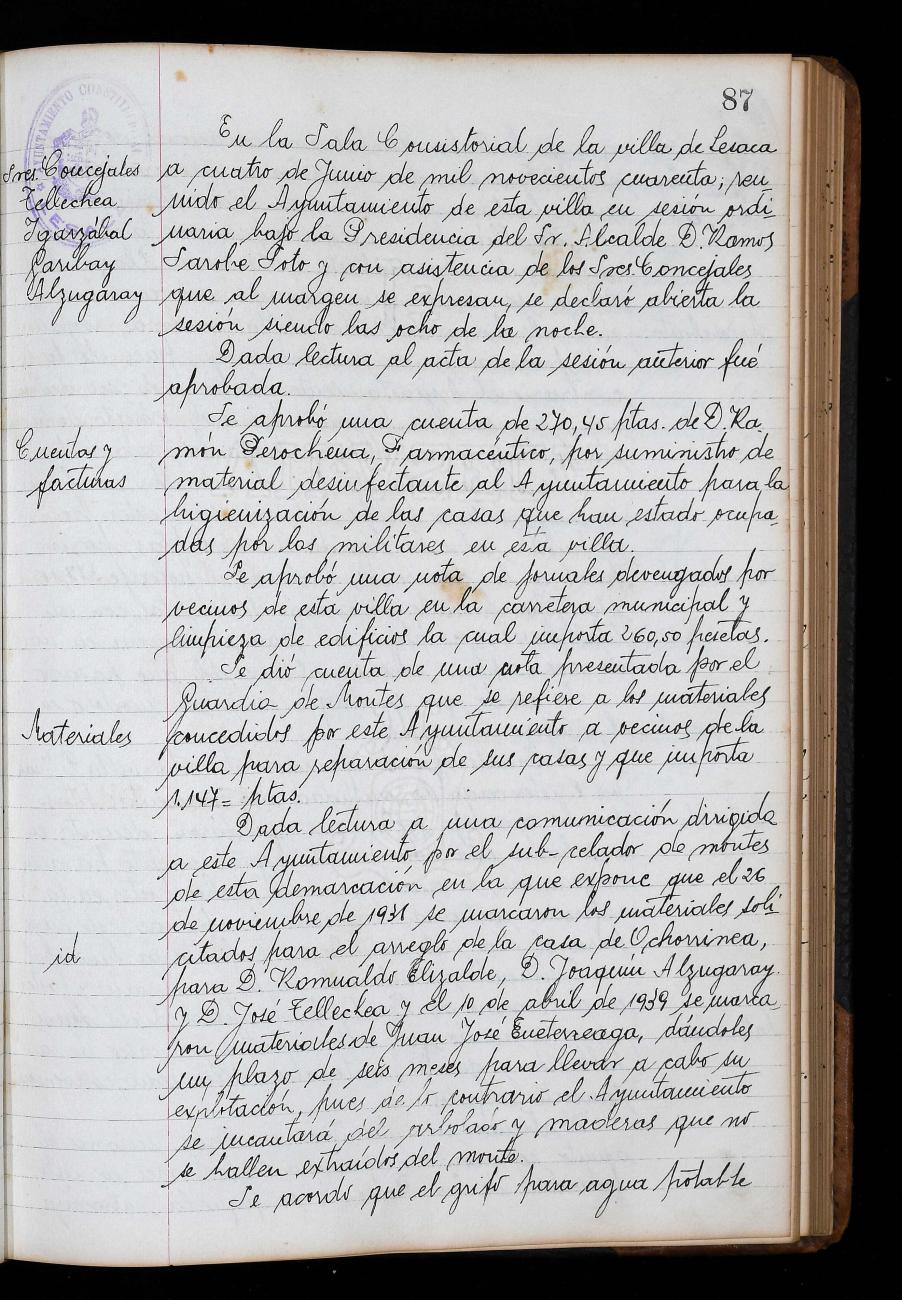 87
AYUNTAMIENTO CONSTITUCIONAL
En la Sala Consistorial de la villa de Lesaca
Sres. Concejales
a cuatro de Junio de mil novecientos cuarenta; reu
Tellechea
nido el Ayuntamiento de esta villa en sesión ordi-
Igarzábal
naria bajo la Presidencia del Sr. Alcalde D. Ramos
Garibay
Sarobe Soto y con asistencia de los Sres. Concejales
Alzugaray
que al margen se expresan, se declaró abierta la
sesión siendo las ocho de la noche.
Dada lectura al acta de la sesión anterior fué
aprobada.
Se aprobó una cuenta de 270,45 ptas. de D. Ra-
Cuentas y
món Perochena, Farmacéutico, por suministro de
facturas
material desinfectante al Ayuntamiento para la
higienización de las casas que han estado ocupa-
das por los militares en esta villa.
Se aprobó una nota de jornales devengados por
vecinos de esta villa en la carretera municipal y
limpieza de edificios la cual importa 260,50 pesetas.
Se dió cuenta de una nota presentada por el
Guardia de Montes que se refiere a los materiales
Materiales
concedidos por este Ayuntamiento a vecinos de la
villa para reparación de sus casas y que importa
1.147= ptas.
Dada lectura a una comunicación dirigida
a este Ayuntamiento por el sub-celador de montes
de esta demarcación en la que expone que el 26
de noviembre de se marcaron los materiales soli-
id
citados para el arreglo de la casa de Ochorrinea,
para D. Romualdo Elizalde, D. Joaquín Alzugaray
y D. José Tellechea y el 10 de abril de 1939 se marca-
ron materiales de Juan José dándoles
un plazo de seis meses para llevar a cabo su
explotación, pues de lo contrario el Ayuntamiento
se incautará del arbolado y maderas que no
se hallen extraídos del monte.
Se acordó que el grifo para agua potable